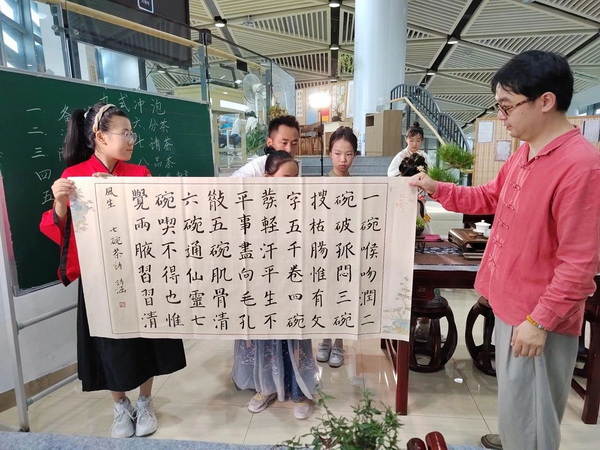 式冲泡
一 备
二
三
四
五
分茶
八 品茶
一碗喉吻潤二
碗破孤悶三碗
搜枯腸惟有文
字五千卷四碗
發輕汗平生不
平事盡向毛孔
散五碗肌骨清
六碗通仙靈七
碗喫不得也惟
覺兩腋習習清
風生
七碗茶詩